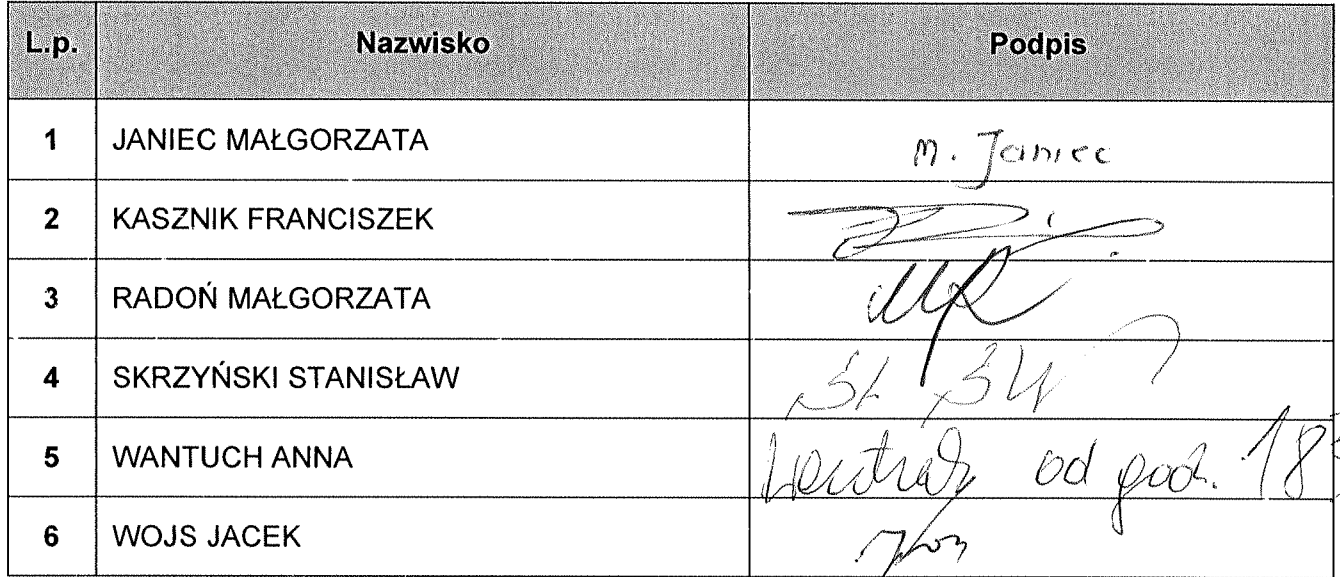 L.p. Nazwisko Podpis
1 JANIEC MAŁGORZATA M. Janiec
2 KASZNIK FRANCISZEK
3 RADOŃ MAŁGORZATA
4 SKRZYŃSKI STANISŁAW
5 WANTUCH ANNA od godz. 18
6 WOJS JACEK